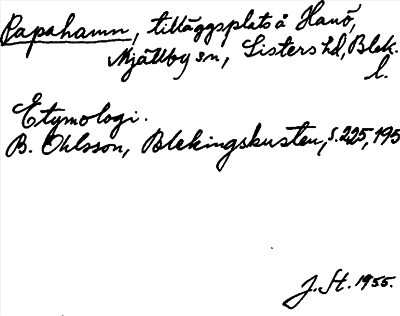 Papahamn, tilläggsplats å Hanö,
Mjällby sn, Listers hd, Blek.
l.
Etymologi.
B. Ohlsson, Blekingskusten, s. 225, 195
J. St. 1955.